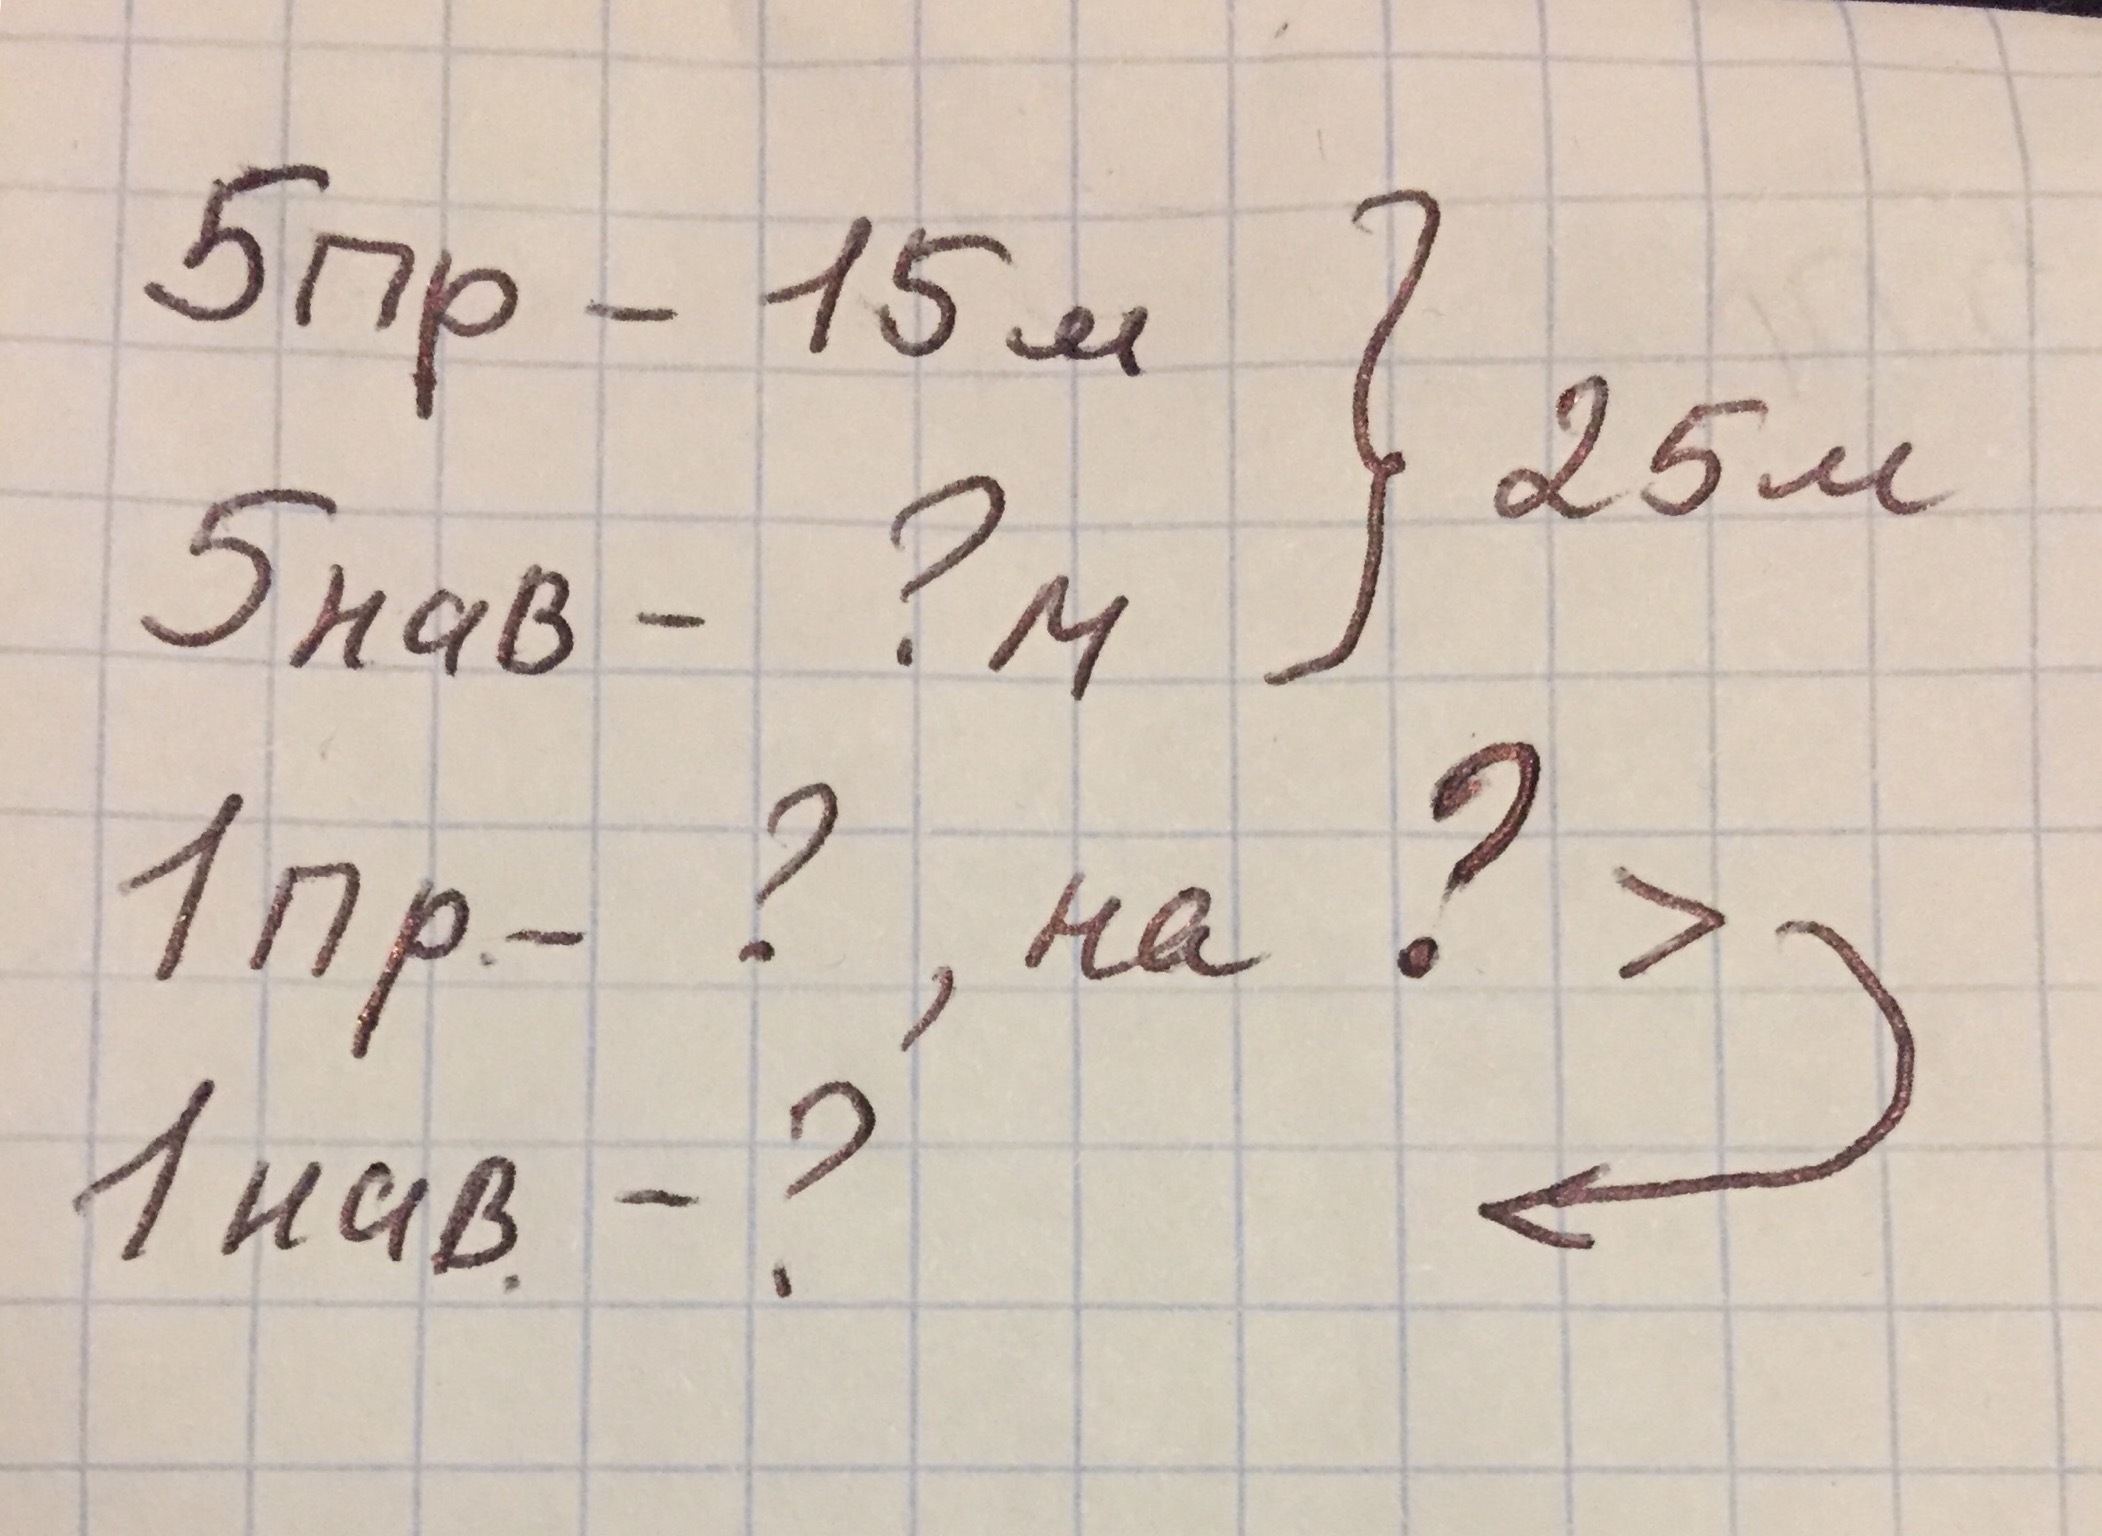 5пр - 15м
5нав - ?м } 25м
1пр. - ?, на ? >
1нав. - ?